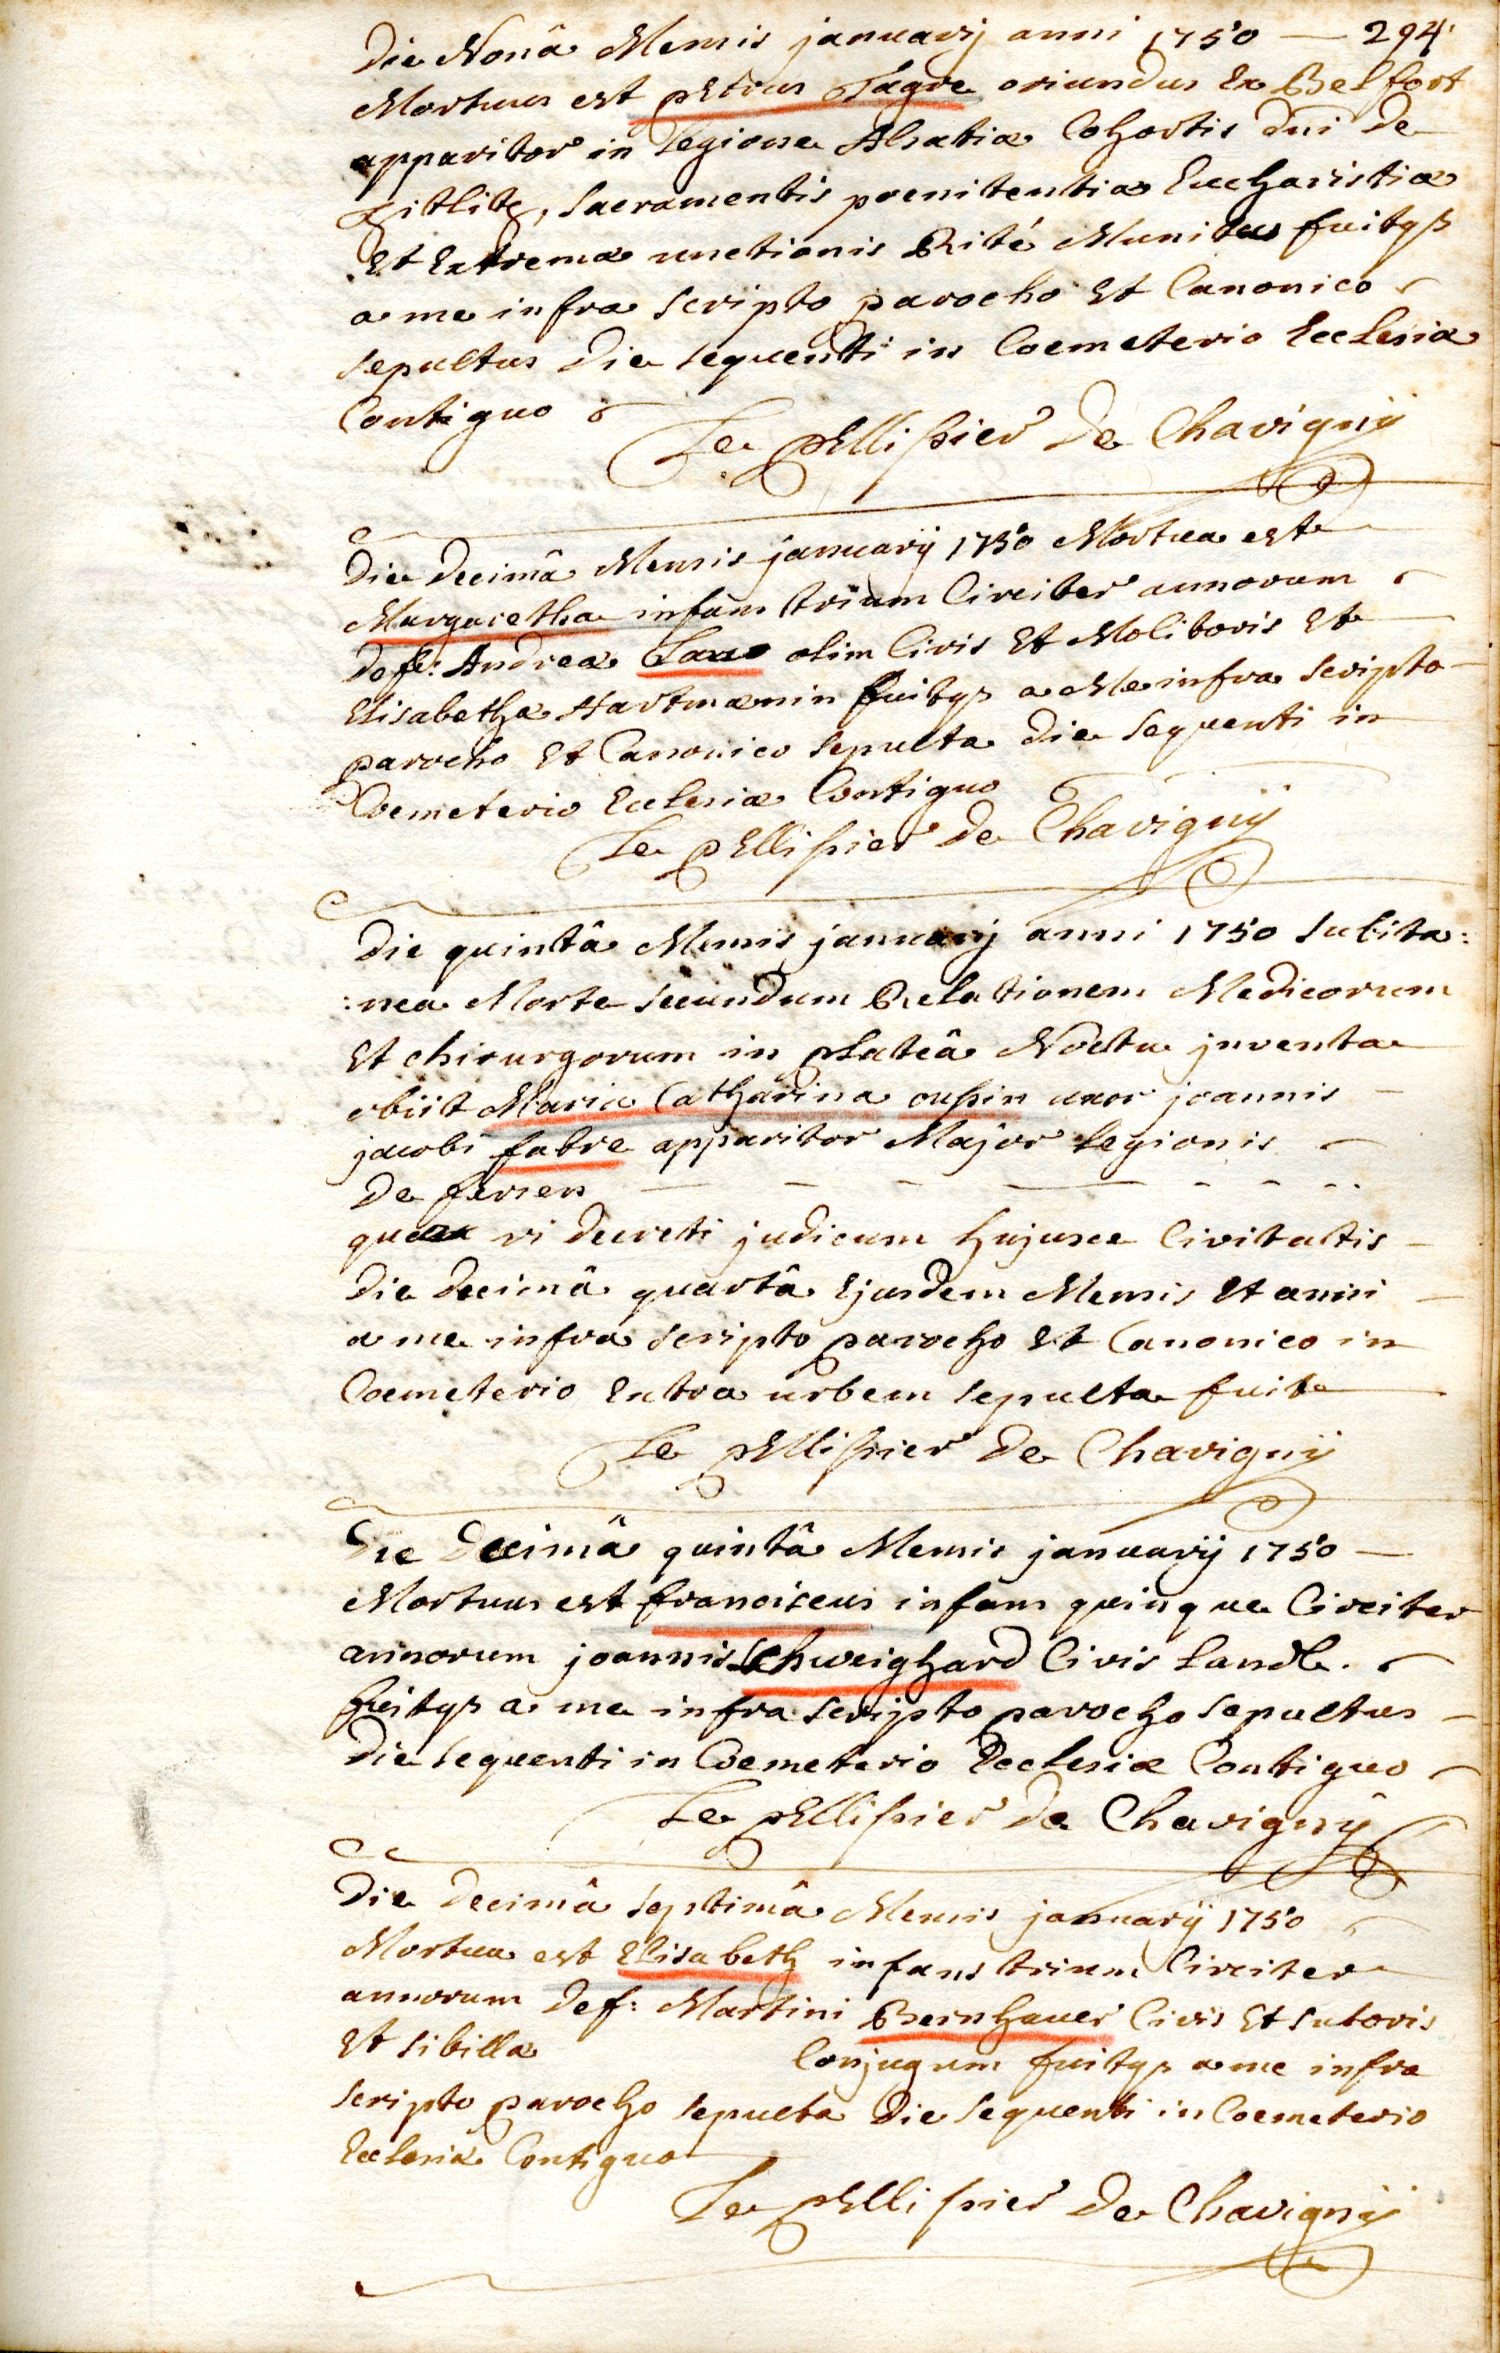 Die Nonâ Mensis januarij anni 1750 — 294
Mortuus est pEtrus Fagre oriundus Ex Belfort
apparitor in Legione Alsatiæ Cohortis Dni De
Sacramentis poenitentiæ Eucharistiæ
Et Extremæ unctionis Rité Munitus fuitqs
a me infra scripto parocho Et Canonico
sepultus Die sequenti in Coemeterio Ecclesiæ
Contiguo
Le pEllissier De Chavignÿ
Die Decimâ Mensis januarÿ 1750 Mortua est
Margaretha infans trium Circiter annorum
def: Andreæ olim Civis Et Molitoris Et
Elisabethæ Hartmænin fuitqs a Me infra scripto
parocho Et Canonico sepulta Die sequenti in
Coemeterio Ecclesiæ Contiguo
Le pEllissier De Chavignÿ
Die quintâ Mensis januarij anni 1750 subita:
:nea Morte secundum Relationem Medicorum
Et chirurgorum in plateâ Noctu jnventa
obiit Maria Catharina oussin uxor joannis
jacobi fabre apparitor Major Legionis
De fersen
quæ vi decreti judicum hujusce Civitatis
Die Decimâ quartâ Ejusdem Mensis Et anni
a me infra scripto parocho Et Canonico in
Coemeterio Extra urbem sepulta fuit
Le pEllissier De Chavignÿ
Die Decimâ quintâ Mensis januarÿ 1750
Mortuus est franciscus infans quinque Circiter
annorum joannis Schweighard Civis Land.
fuitqs a me infra scripto parocho sepultus
Die sequenti in Coemeterio Ecclesiæ Contiguo
Le pEllissier De Chavignÿ
Die Decimâ septimâ Mensis januarÿ 1750
Mortua est Elisabeth infans trium Circiter
annorum Def: Martini Beinhauer Civis Et sutoris
Et sibillæ Conjugum fuitqs a me infra
scripto parocho sepulta Die sequenti in Coemeterio
Ecclesiæ Contiguo
Le pEllissier De Chavignÿ